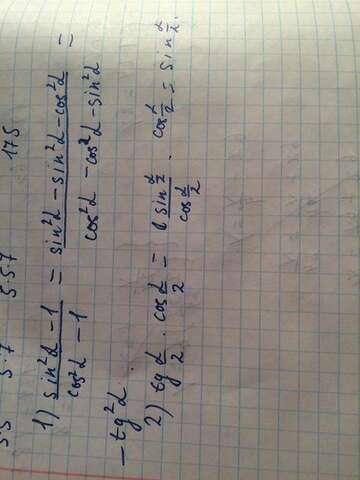 5.5 5.7 5.57 175
1) \frac{sin²α - 1}{cos²α - 1} = \frac{sin²α - sin²α - cos²α}{cos²α - cos²α - sin²α} =
- tg²α
2) tg \frac{α}{2} · cos \frac{α}{2} = \frac{sin \frac{α}{2}}{cos \frac{α}{2}} · cos \frac{α}{2} = sin \frac{α}{2}.